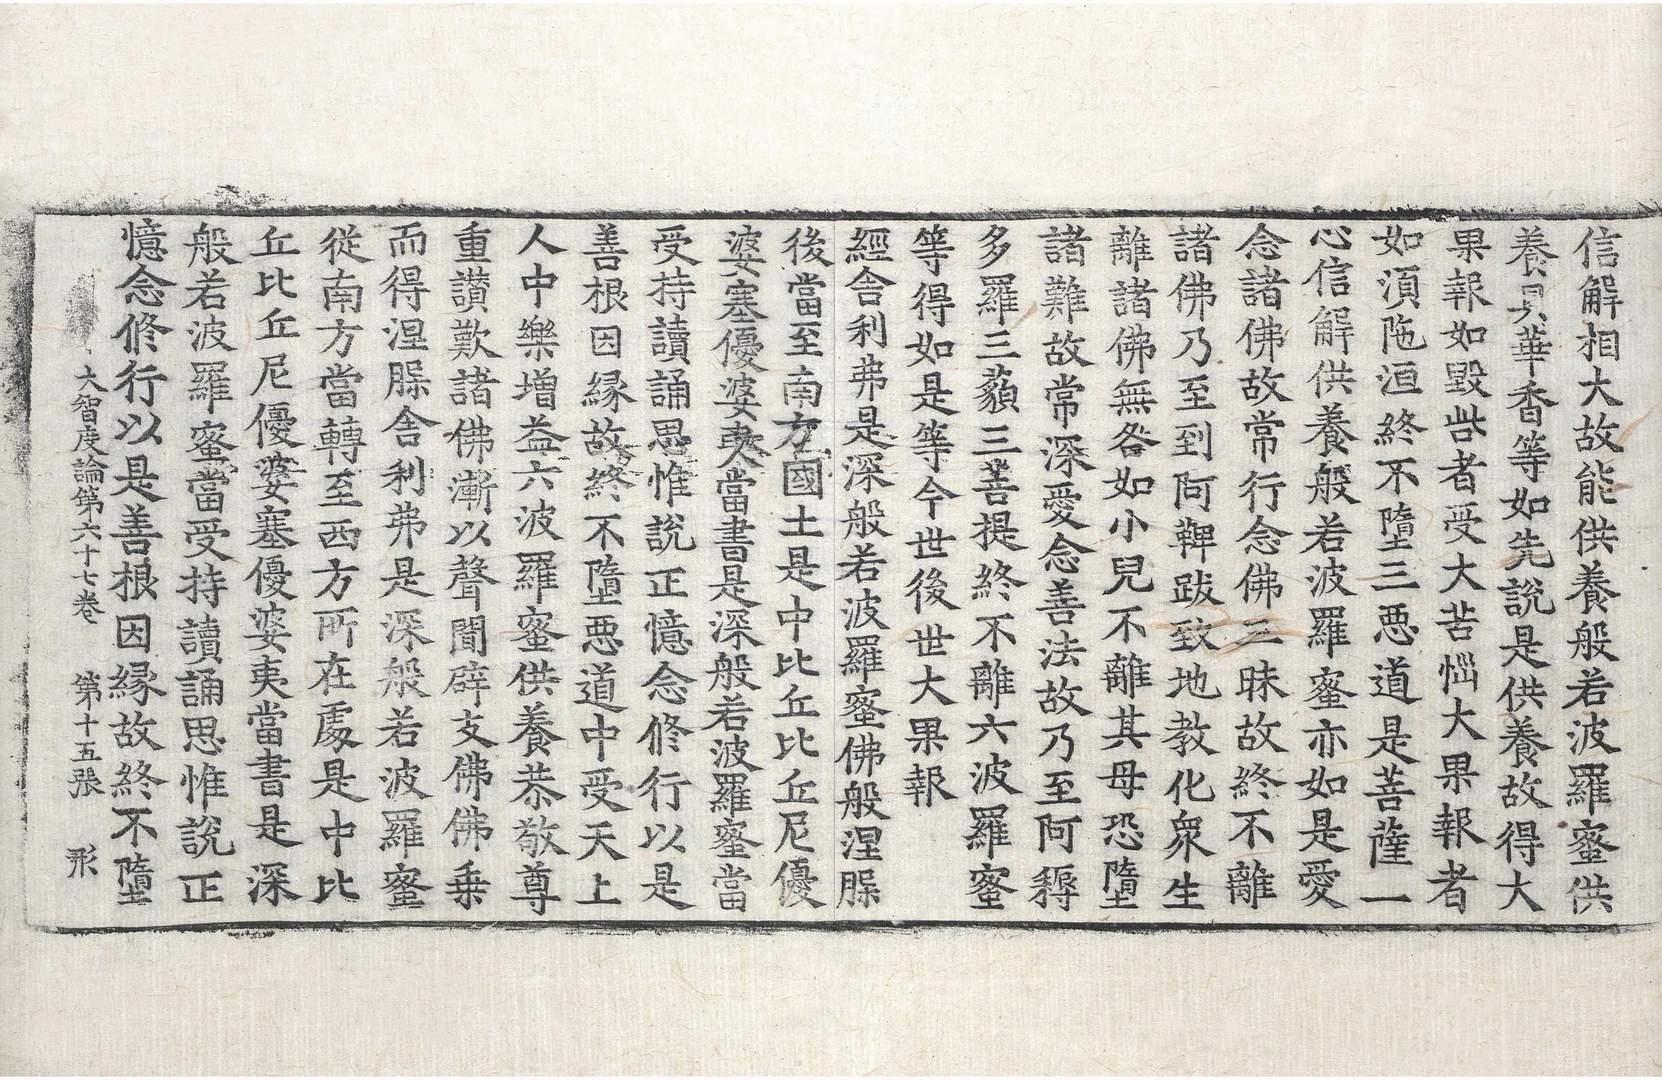 信解相大故能供養般若波羅蜜供
養具華香等如先說是供養故得大
果報如毀呰者受大苦惱大果報者
如湏陁洹終不墮三惡道是菩薩一
心信解供養般若波羅蜜亦如是愛
念諸佛故常行念佛三昧故終不離
諸佛乃至到阿鞞跋致地教化衆生
離諸佛無咎如小兒不離其母恐墮
諸難故常深愛念善法故乃至阿耨
多羅三藐三菩提終不離六波羅蜜
等得如是等今世後世大果報
經舍利弗是深般若波羅蜜佛般涅槃
後當至南方國土是中比丘比丘尼優
婆塞優婆夷當書是深般若波羅蜜當
受持讀誦思惟說正憶念修行以是
善根因緣故終不墮惡道中受天上
人中樂增益六波羅蜜供養恭敬尊
重讃歎諸佛漸以聲聞辟支佛佛乗
而得涅槃舍利弗是深般若波羅蜜
從南方當轉至西方所在處是中比
丘比丘尼優婆塞優婆夷當書是深
般若波羅蜜當受持讀誦思惟說正
憶念修行以是善根因緣故終不墮
大智度論第六十七卷 第十五張 形